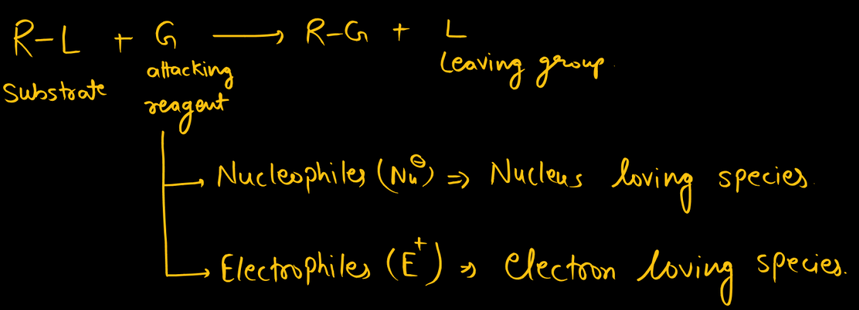 R-L + G ⟶ R-G + L
Substrate attacking reagent leaving group
→ Nucleophiles (Nu⊖) ⇒ Nucleus loving species.
→ Electrophiles (E⁺) ⇒ electron loving species.